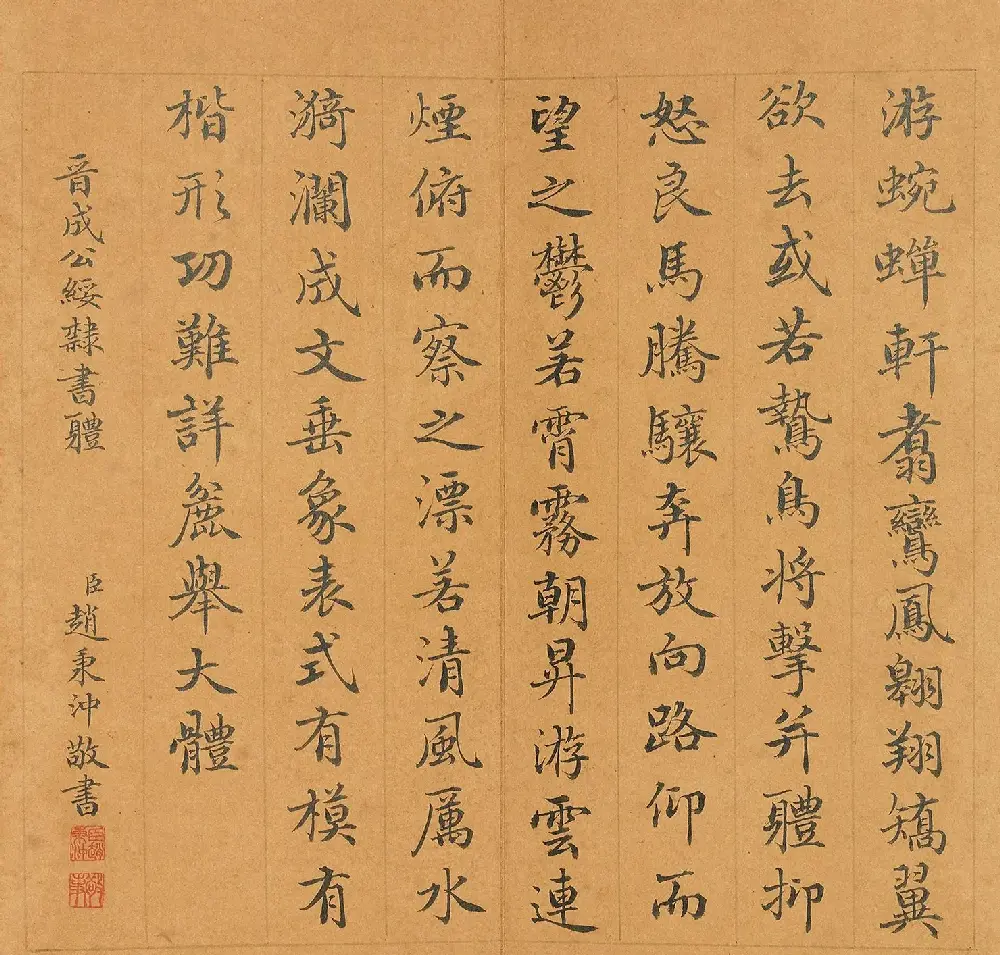 游蜿蟬軒翥鸞鳳翱翔矯翼
欲去或若鷙鳥將擊并軆抑
怒良馬騰驤奔放向路仰而
望之鬱若霄霧朝昇游雲連
煙俯而察之漂若清風厲水
漪瀾成文垂象表式有模有
楷形功難詳麄舉大體
晉成公綏隸書軆
臣趙秉沖敬書
臣趙秉沖